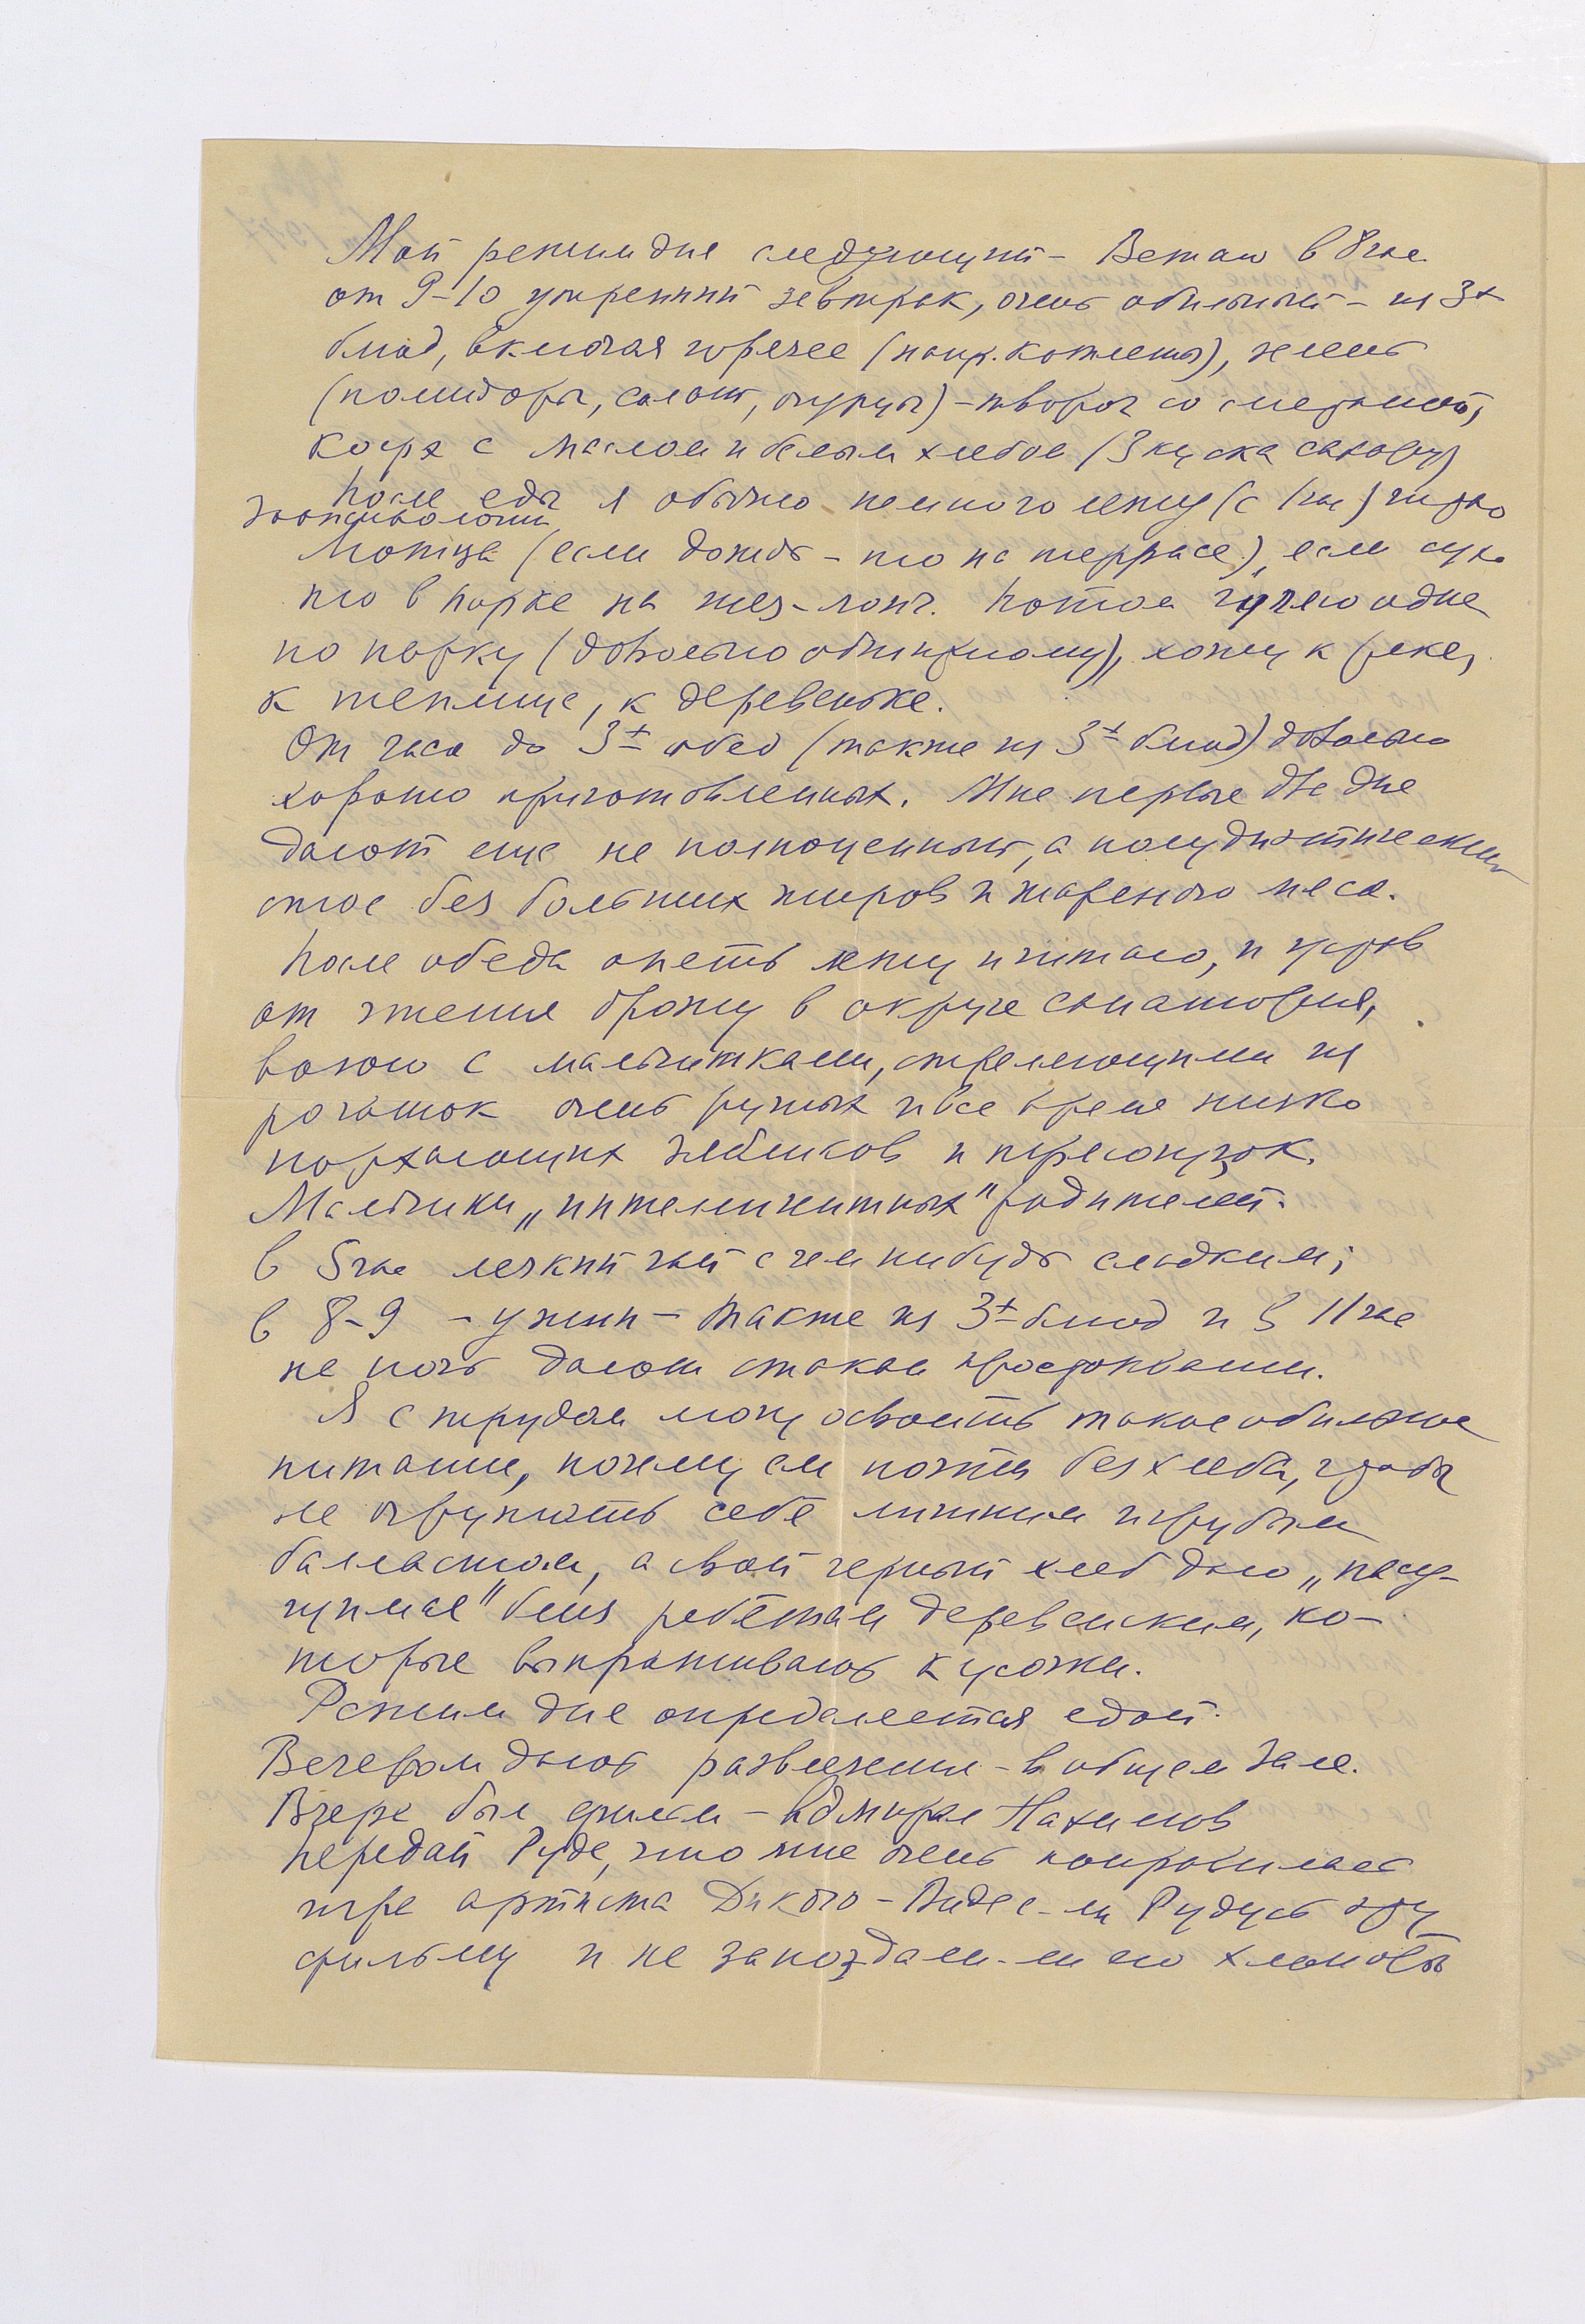 Мой режим дня следующий – Встаю в 8 час.
от 9–10 утренний завтрак, очень обильный – из 3х
блюд, включая горячее (напр. котлеты), зелень
(помидоры, салат, огурцы) – творог со сметаной,
кофе с маслом и белым хлебом (3 куска сахару)
После еды я обычно немного лежу (с 1 час) читаю
Зоопсихологию
Мотица (если дождь – то на террасе), если сухо
то в парке на шез-лонг. Потом гуляю один
по парку (довольно обширному), хожу к реке,
к теплице, к деревеньке.
От часа до 3х обед (также из 3х блюд) довольно
хорошо приготовленных. Мне первые две дня
дают еще не полноценный, а полудиэтический
стол без больших жиров и жареного мяса.
После обеда опять лежу и читаю, и устав
от чтения брожу в округе санатория,
воюю с мальчишками, стреляющими из
рогаток очень ручных и все время низко
порхающих зябликов и трясогузок.
Мальчики „интеллигентных" родителей.
в 5 час легкий чай с чем нибудь сладким;
в 8–9 – ужин – также из 3х блюд и в 11 час
на ночь дают стакан простокваши.
Я с трудом могу освоить такое обильное
питание, почему ем почти без хлеба, чтобы
не огрузнать себя лишним и грубым
балластом, а свой черный хлеб даю „насу-
щимся" близ ребятам деревенским, ко-
торые выпрашивают кусочки.
Режим дня определяется едой.
Вечером дают развлечения – в общем зале.
Вчера был фильм – Адмирал Нахимов
передай Руде, что мне очень понравилась
игра артиста Дикого – Видел-ли Рудусь эту
фильму и не запоздали-ли его хлопоты